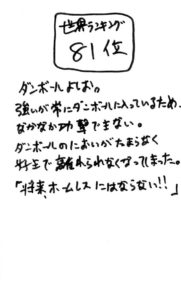 世界ランキング
81位
ダンボールよしお。
強いが常にダンボールに入っているため、
なかなか攻撃できない。
ダンボールのにおいがたまらなく
好きで離れられなくなってしまった。
「将来、ホームレスにはならない!!」